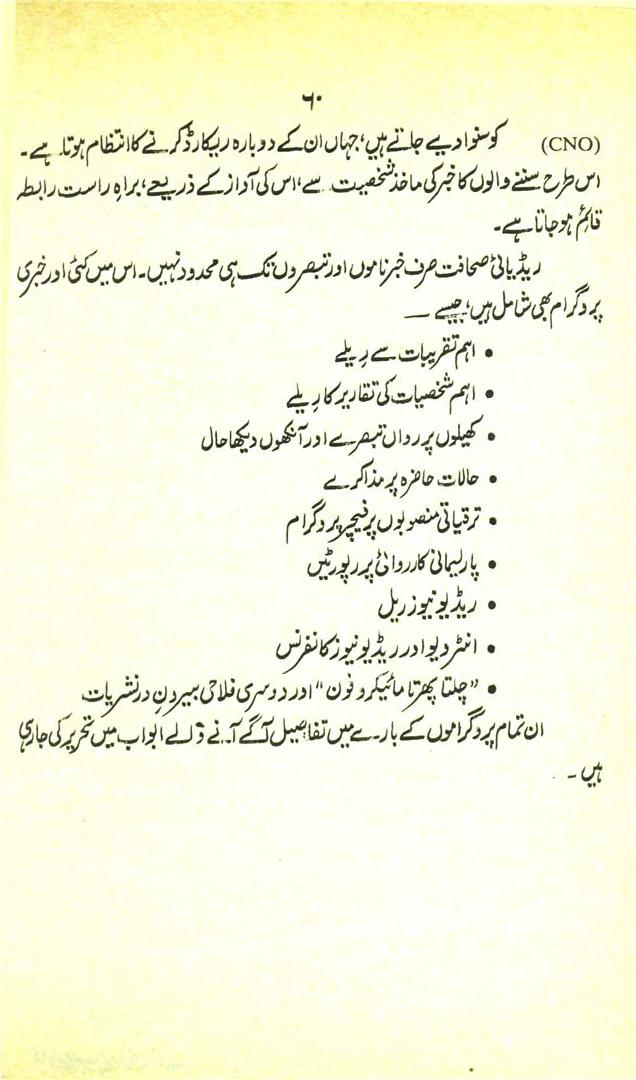 ۶۰
(CNO) کو سنوا دیے جاتے ہیں، جہاں ان کے دوبارہ ریکارڈ کرنے کا انتظام ہوتا ہے۔
اس طرح سننے والوں کا خبر کی ماخذ شخصیت سے، اس کی آواز کے ذریعے، براہِ راست رابطہ
قائم ہو جاتا ہے۔
ریڈیائی صحافت صرف خبرناموں اور تبصروں تک ہی محدود نہیں۔ اس میں کئی اور خبری
پروگرام بھی شامل ہیں، جیسے —
• اہم تقریبات سے رِیلے
• اہم شخصیات کی تقاریر کا رِیلے
• کھیلوں پر رواں تبصرے اور آنکھوں دیکھا حال
• حالات حاضرہ پر مذاکرے
• ترقیاتی منصوبوں پر فیچر پروگرام
• پارلیمانی کارروائی پر رپورٹیں
• ریڈیو نیوز ریل
• انٹرویو اور ریڈیو نیوز کانفرنس
• "چلتا پھرتا مائیکروفون" اور دوسری فلاحی بیرونِ در نشریات
ان تمام پروگراموں کے بارے میں تفاصیل آگے آنے والے ابواب میں تحریر کی جا رہی
ہیں۔